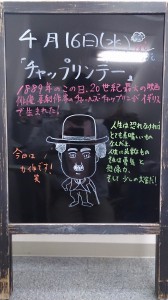 4月16日(水)
「チャップリンデー」
1889年のこの日、20世紀最大の映画
俳優・喜劇作家のチャールズ・チャップリンがイギリス
で生まれました!
人生は恐れなければ
とても素晴らしいもの
なんだよ。
人生に必要なもの
それは勇気と
想像力、
そして少しのお金だ!
今日は